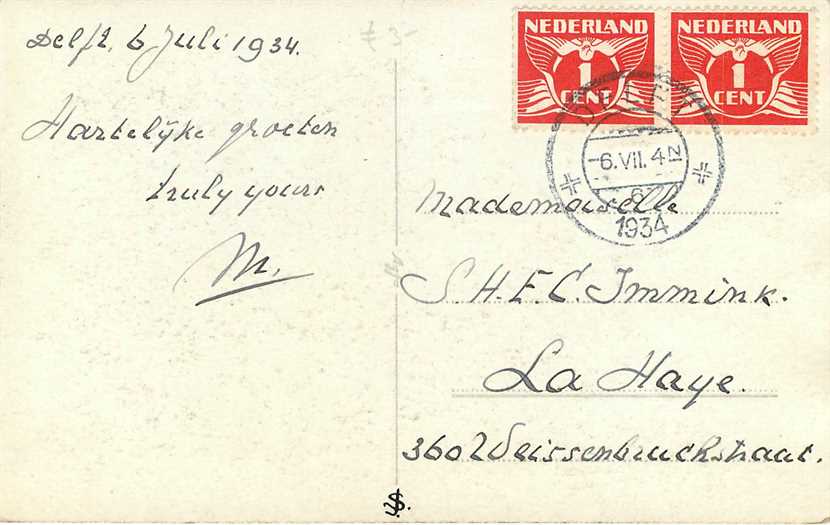 Delft, 6 Juli 1934.
Hartelijke groeten
truly yours
M.
NEDERLAND
1
CENT
NEDERLAND
1
CENT
DELFT
-6.VII.4N
6
1934
Mademoiselle
S.H.E.C. Immink.
La Haye.
360 Weissenbruchstraat.